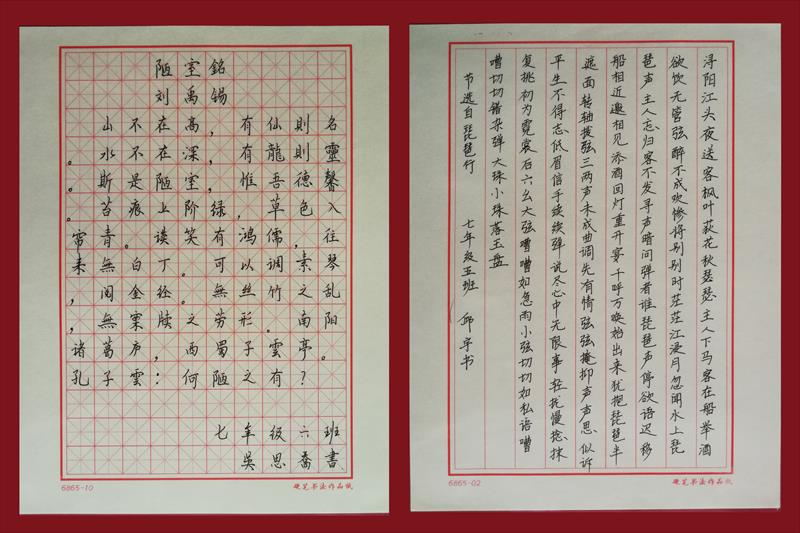 陋室銘
刘禹锡
山不在高，有仙則名
。水不在深，有龍則靈
。斯是陋室，惟吾德馨
。苔痕上阶绿，草色入
帘青。谈笑有鸿儒，往
来無白丁。可以调素琴
，阅金经。無丝竹之乱
無案牍之劳形。南阳
诸葛庐，西蜀子雲亭。
孔子雲：何陋之有？
七年级六班
吳思蕎書
6865-10
硬笔书法作品纸
浔阳江头夜送客枫叶荻花秋瑟瑟主人下马客在船举酒
欲饮无管弦醉不成欢惨将别别时茫茫江浸月忽闻水上琵
琶声主人忘归客不发寻声暗问弹者谁琵琶声停欲语迟移
船相近邀相见添酒回灯重开宴千呼万唤始出来犹抱琵琶半
遮面转轴拨弦三两声未成曲调先有情弦弦掩抑声声思似诉
平生不得志低眉信手续续弹说尽心中无限事轻拢慢捻抹
复挑初为霓裳后六幺大弦嘈嘈如急雨小弦切切如私语嘈
嘈切切错杂弹大珠小珠落玉盘
节选自琵琶行 七年级五班 邱宇书
6865-02
硬笔书法作品纸